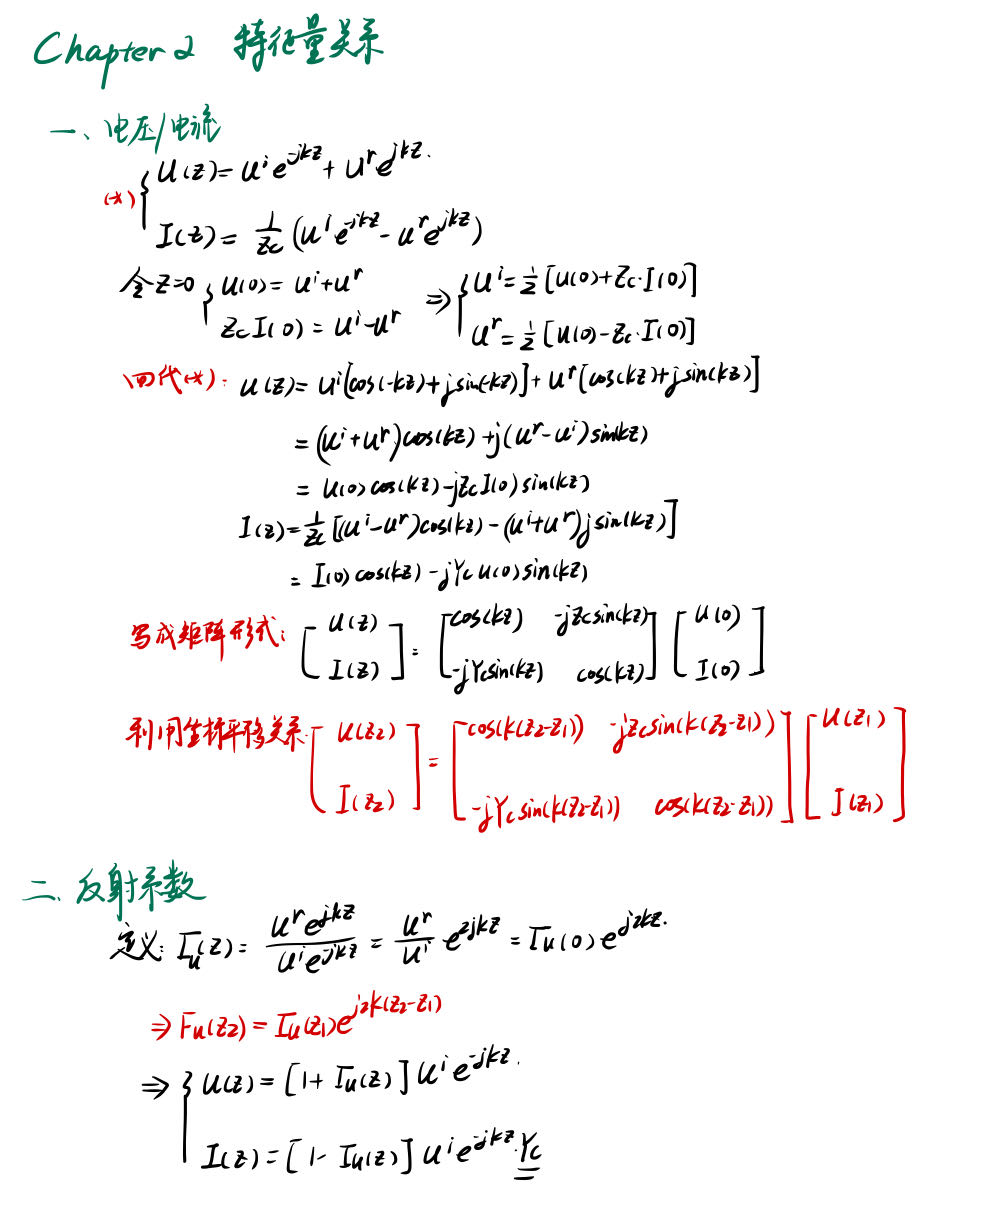 Chapter 2 特征量关系
一、电压/电流
(*) { U(z) = Uⁱe^{-jkz} + Uʳe^{jkz}.
I(z) = 1/Zc (Uⁱe^{-jkz} - Uʳe^{jkz})
令z=0 { U(0) = Uⁱ+Uʳ ⇒ { Uⁱ = 1/2 [U(0)+Zc·I(0)]
ZcI(0) = Uⁱ-Uʳ Uʳ = 1/2 [U(0)-Zc·I(0)]
回代(*): U(z) = Uⁱ[cos(-kz)+jsin(-kz)] + Uʳ[cos(kz)+jsin(kz)]
= (Uⁱ+Uʳ)cos(kz) + j(Uʳ-Uⁱ)sin(kz)
= U(0)cos(kz) - jZcI(0)sin(kz)
I(z) = 1/Zc [(Uⁱ-Uʳ)cos(kz) - (Uⁱ+Uʳ)jsin(kz)]
= I(0)cos(kz) - jYcU(0)sin(kz)
写成矩阵形式: [ U(z) ] = [ cos(kz) -jZcsin(kz) ] [ U(0) ]
[ I(z) ] [ -jYcsin(kz) cos(kz) ] [ I(0) ]
利用坐标平移关系 [ U(z₂) ] = [ cos(k(z₂-z₁)) -jZcsin(k(z₂-z₁)) ] [ U(z₁) ]
[ I(z₂) ] [ -jYcsin(k(z₂-z₁)) cos(k(z₂-z₁)) ] [ I(z₁) ]
二、反射系数
定义: Γᵤ(z) = Uʳe^{jkz}/Uⁱe^{-jkz} = Uʳ/Uⁱ e^{2jkz} = Γᵤ(0)e^{j2kz}.
⇒ Γᵤ(z₂) = Γᵤ(z₁)e^{j2k(z₂-z₁)}
⇒ { U(z) = [1+Γᵤ(z)]Uⁱe^{-jkz}.
I(z) = [1-Γᵤ(z)]Uⁱe^{-jkz}·Yc